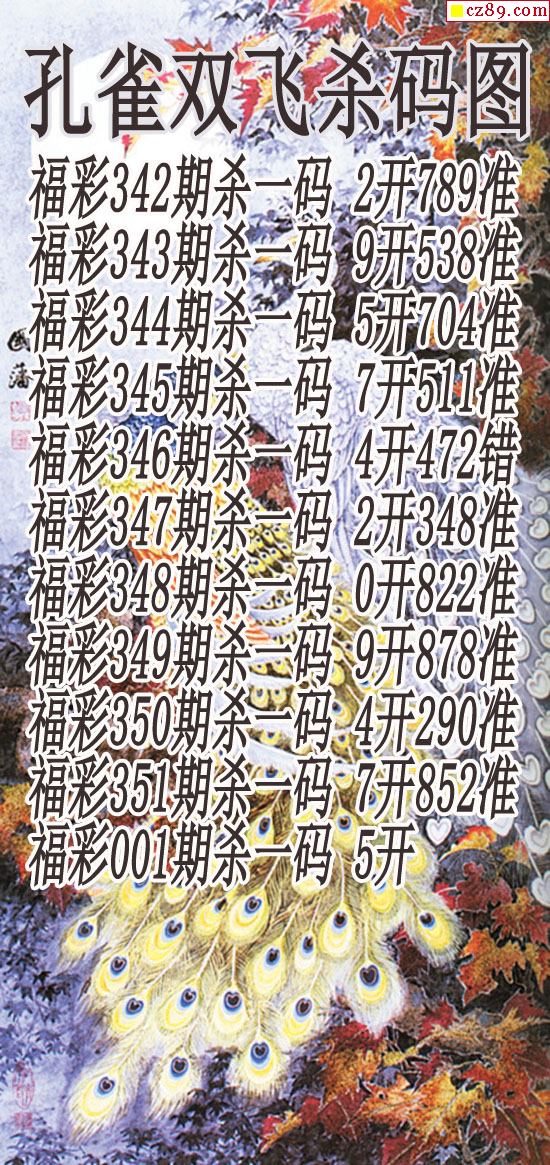 cz89.com
孔雀双飞杀码图
福彩342期杀一码 2开789准
福彩343期杀一码 9开538准
福彩344期杀一码 5开704准
福彩345期杀一码 7开511准
福彩346期杀一码 4开472错
福彩347期杀一码 2开348准
福彩348期杀一码 0开822准
福彩349期杀一码 9开878准
福彩350期杀一码 4开290准
福彩351期杀一码 7开852准
福彩001期杀一码 5开